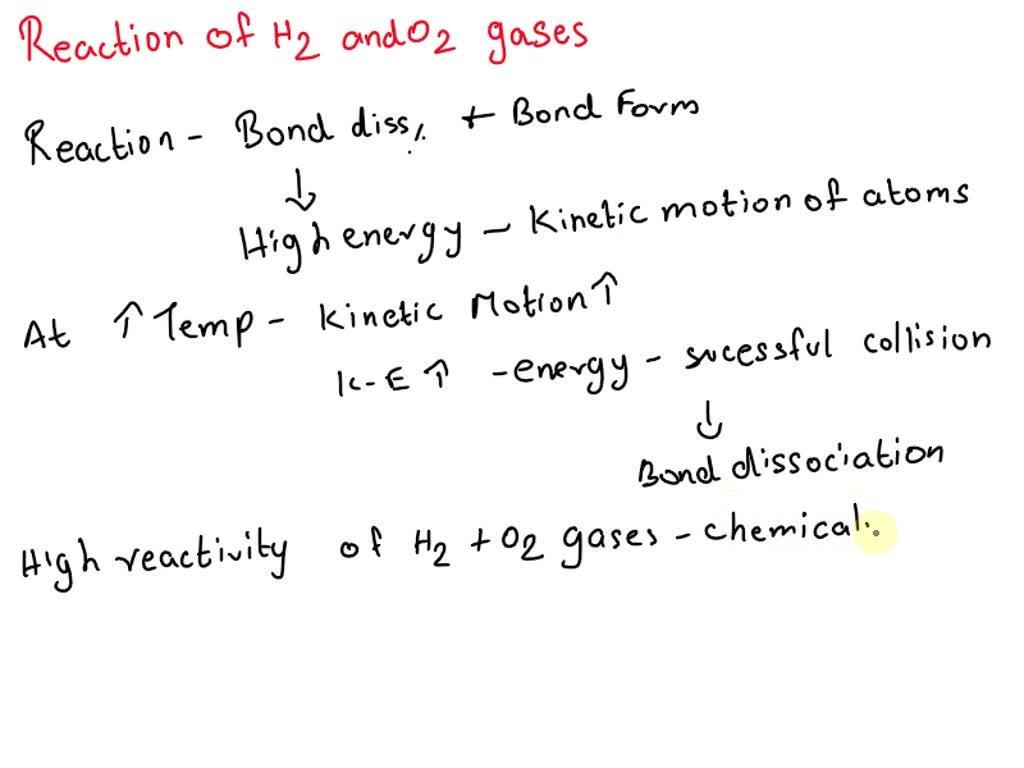 Reaction of H2 and O2 gases
Reaction - Bond diss. + Bond Form
↓
High energy - Kinetic motion of atoms
At ↑ Temp - Kinetic Motion ↑
K-E ↑ - energy - sucessful collision
↓
Bond dissociation
High reactivity of H2 + O2 gases - chemical.